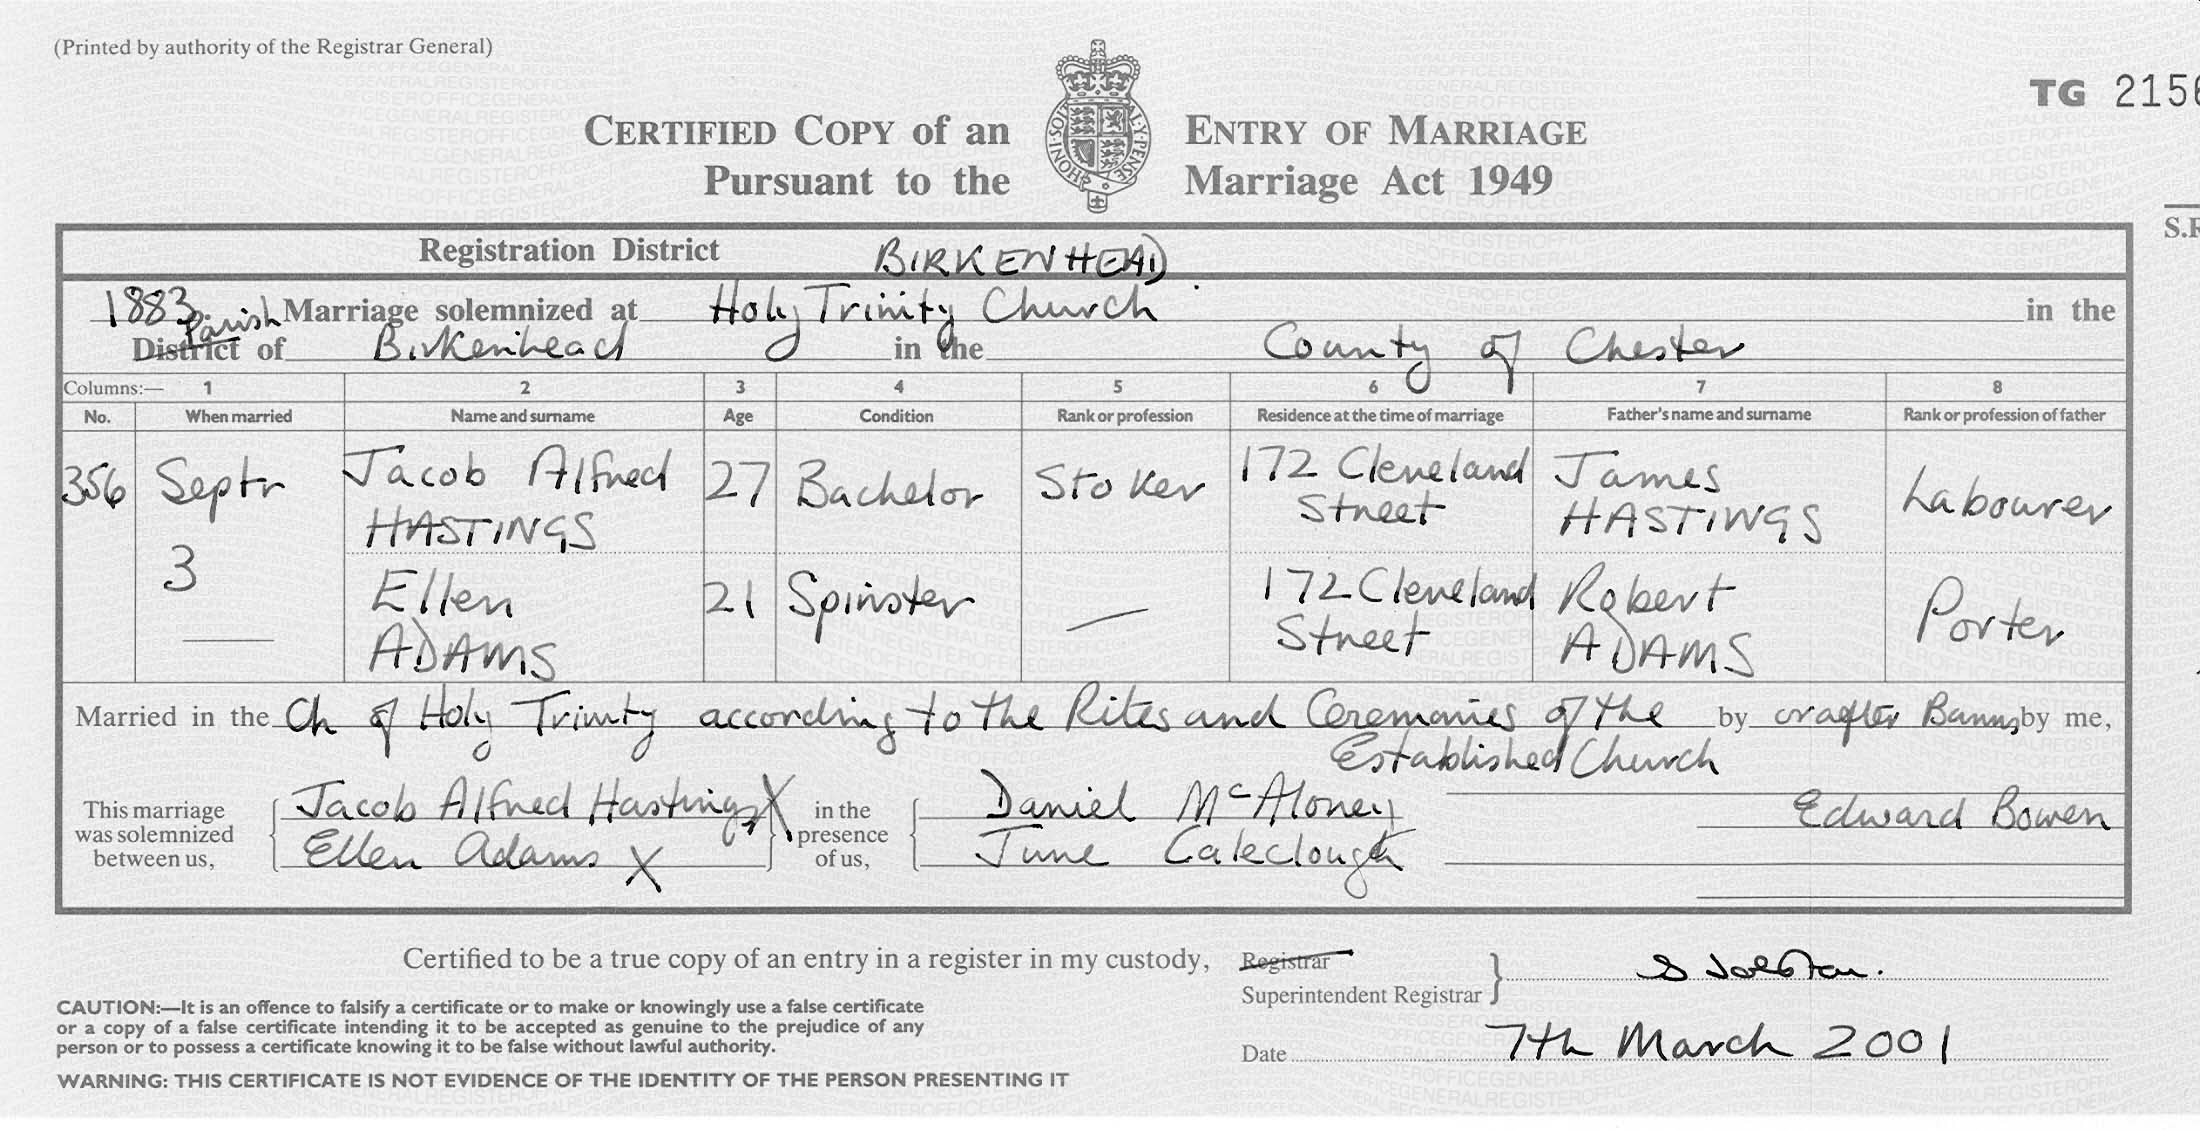 (Printed by authority of the Registrar General)
TG 2156
CERTIFIED COPY of an ENTRY OF MARRIAGE
Pursuant to the Marriage Act 1949
S.R
Registration District BIRKENHEAD
1883 Marriage solemnized at Holy Trinity Church in the
Parish
District of Birkenhead in the County of Chester
Columns:— 1 2 3 4 5 6 7 8
No. When married Name and surname Age Condition Rank or profession Residence at the time of marriage Father's name and surname Rank or profession of father
356 Septr Jacob Alfred 27 Bachelor Stoker 172 Cleveland James Labourer
HASTINGS Street HASTINGS
3 Ellen 21 Spinster — 172 Cleveland Robert Porter
ADAMS Street ADAMS
Married in the Ch of Holy Trinity according to the Rites and Ceremonies of the by or after Banns by me,
Established Church
This marriage was solemnized between us, Jacob Alfred Hastings X in the presence of us, Daniel McAloney Edward Bowen
Ellen Adams X June
Certified to be a true copy of an entry in a register in my custody, Registrar
Superintendent Registrar
CAUTION:—It is an offence to falsify a certificate or to make or knowingly use a false certificate
or a copy of a false certificate intending it to be accepted as genuine to the prejudice of any
person or to possess a certificate knowing it to be false without lawful authority.
Date 7th March 2001
WARNING: THIS CERTIFICATE IS NOT EVIDENCE OF THE IDENTITY OF THE PERSON PRESENTING IT